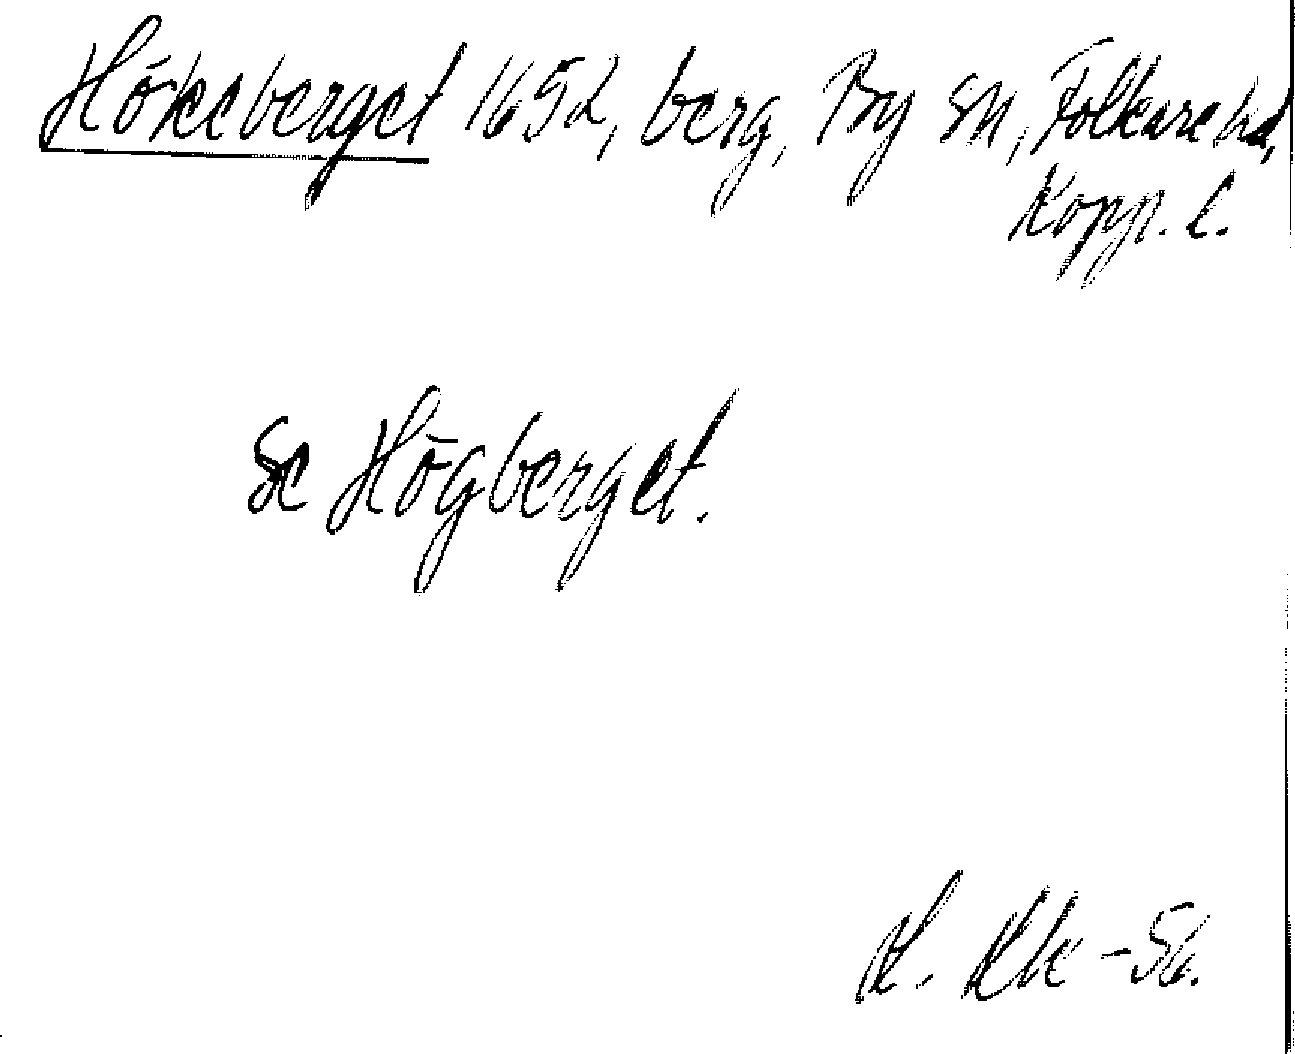 Hökeberget 1652, berg, By sn, Folkare hd,
Kopp. l.
Se Högberget.
-56.